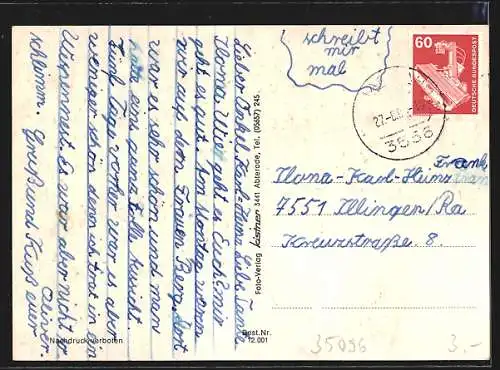 schreibt
mir
mal
60
DEUTSCHE BUNDESPOST
3536
Lieber Onkel Karl-Heinz, Liebe Tante
Ilona. Wie geht es Euch? mir
geht es gut. Am Montag waren
wir auf dem Hohen Berg. Dort
war es sehr schön und man
hatte eine ganz tolle Aussicht.
Fünf Tage vorher war es aber
weniger schön denn ich trat in ein
Wespennest. Es war aber nicht so
schlimm. Gruß und Kuß euer
Oliver.
Foto-Verlag Kästner 3441 Abterode, Tel. (05657) 245
Ilona-Karl-Heinz Frank
7551 Illingen/Ra
Kreuzstraße 8.
Nachdruck verboten
Best.Nr.
12.001
35096
3.-